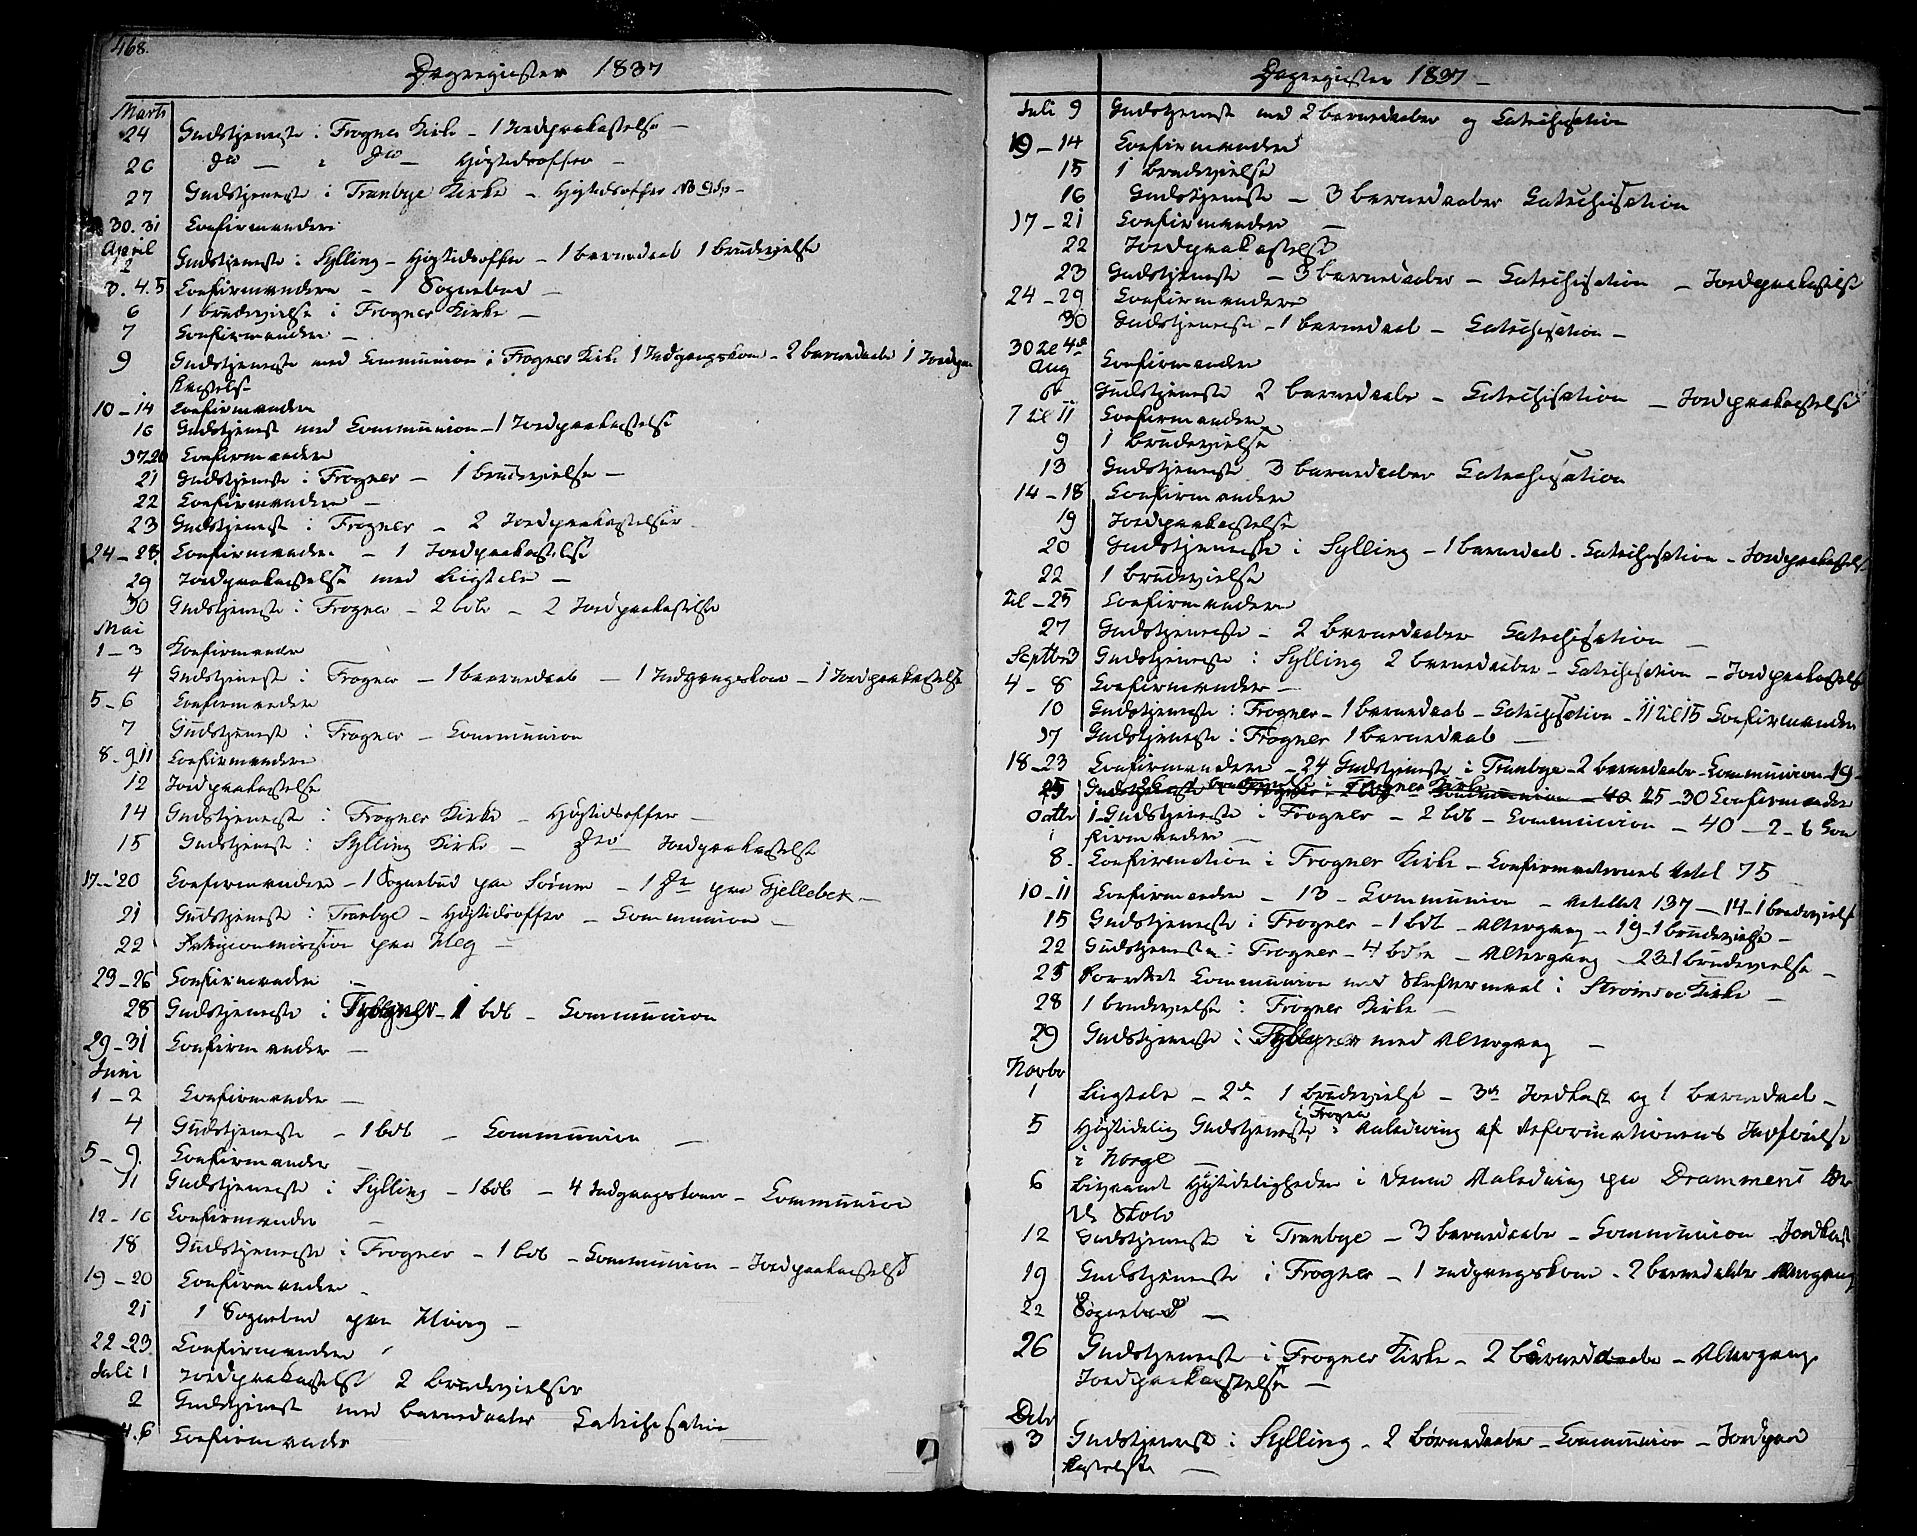 468.
Dagregister 1837
Marts
24 Gudstjeneste i Frogner Kirke - 1 Jordpaakastelse -
26 do - i do - Høgtidsoffer -
27 Gudstjeneste i Tranbye Kirke - Høgtidsoffer
30. 31 Confirmandere
April
2 Gudstjeneste i Sylling - Høgtidsoffer - 1 barnedaab 1 brudevielse
3. 4. 5 Confirmandere - 1 Sognebud -
6 1 brudevielse i Frogner Kirke -
7 Confirmander -
9 Gudstjeneste med Communion i Frogner Kirke 1 Indgangskone - 2 barnedaabe 1 Jordpaa
kastelse
10 - 14 Confirmandere
16 Gudstjeneste med Communion - 1 Jordpaakastelse
17 20 Confirmandere
21 Gudstjeneste i Frogner - 1 brudevielse -
22 Confirmandere -
23 Gudstjeneste i Frogner - 2 Jordpaakastelser
24 - 28. Confirmandere - 1 Jordpaakastelse
29 Jordpaakastelse med Liigtale -
30 Gudstjeneste i Frogner - 2 bdb - 2 Jordpaakastelse
Mai
1 - 3 Confirmander
4 Gudstjeneste i Frogner - 1 barnedaab - 1 Indgangskone - 1 Jordpaakastelse
5 - 6 Confirmandere
7 Gudstjeneste i Frogner - Communion
8 - 9. 11 Confirmandere
12 Jordpaakastelse
14 Gudstjeneste i Frogner Kirke - Høgtidsoffer -
15 Gudstjeneste i Sylling Kirke - do Jordpaakastelse
17 - 20 Confirmandere - 1 Sognebud paa Sørum - 1 do paa Gjellebek -
21 Gudstjeneste i Tranbye - Høgtidsoffer - Communion -
22 paa Heg -
23 - 26 Confirmander
28 Gudstjeneste i - 1 bdb - Communion
29 - 31 Confirmander -
Juni
1 - 2 Confirmander -
4 Gudstjeneste - 1 bdb - Communion -
5 - 9. Confirmander -
11 Gudstjeneste i Sylling - 1 bdb - 4 Indgangskoner - Communion
12 - 16 Confirmander -
18 Gudstjeneste i Frogner - 1 bdb - Communion - Jordpaakastelse
19 - 20 Confirmander -
21 1 Sognebud paa -
22 - 23. Confirmandere
Juli 1 Jordpaakastelse 2 brudevielser
2 Gudstjeneste med barnedaaber Catechisation
4. 6 Confirmander
Dagregister 1837 -
Juli 9 Gudstjeneste med 2 barnedaaber og Catechisation
- 14 Confirmander
15 1 brudevielse
16 Gudstjeneste - 3 barnedaaber Catechisation
17 - 21 Confirmandere -
22 Jordpaakastelse
23 Gudstjeneste - 3 barnedaaber - Catechisation - Jordpaakastelse
24 - 29 Confirmandere
30 Gudstjeneste - 1 barnedaab - Catechisation -
30 til 4de
Aug Confirmander
6 Gudstjeneste 2 barnedaabe - Catechisation - Jordpaakastelse
7 til 11 Confirmandere
9 1 brudevielse
13 Gudstjeneste 3 barnedaaber Catechisation
14 - 18 Confirmandere
19 Jordpaakastelse
20 Gudstjeneste i Sylling - 1 barnedaab - Catechisation - Jordpaakastelse
22 1 brudevielse
til - 25 Confirmandere
27 Gudstjeneste - 2 barnedaaber Catechisation -
Septbr 3 Gudstjeneste i Sylling 2 barnedaaber - Catechisation - Jordpaakastelse
4 - 8 Confirmander -
10 Gudstjeneste i Frogner - 1 barnedaab - Catechisation - 11 til 15 Confirmander
17 Gudstjeneste i Frogner 1 barnedaab -
18 - 23 Confirmandere - 24 Gudstjeneste i Tranbye - 2 barnedaabe - Communion - 19 -
26 brudevielse i Frogner Kirke
25 - 30 Confirmander
Octbr 1 Gudstjeneste i Frogner - 2 bdb - Communion - 40 - 2 - 6 Con
firmander -
8. Confirmation i Frogner Kirke - Confirmandernes Antal 75
10 - 11 Confirmander - 13 - Communion - Antallet 137 - 14 - 1 brudevielse
15 Gudstjeneste i Frogner - 1 bdb - Altergang - 19 - 1 brudevielse -
22 Gudstjeneste i Frogner - 4 bdb - Altergang - 23 1 brudevielse -
25 Communion med Skriftemaal i Strømsø Kirke -
28 1 brudevielse i Frogner Kirke -
29 Gudstjeneste i med Altergang -
Novbr
1 Liigtale - 2de 1 brudevielse - 3de Jordkast og 1 barnedaab -
5 Høgtidelig Gudstjeneste i Frogner i Anledning af Reformationens Indførelse
i Norge
6 Høgtideligheder i denne Anledning paa Drammens
Skole
12 Gudstjeneste i Tranbye - 3 barnedaabe - Communion - Jordkast
19 Gudstjeneste i Frogner - 1 Indgangskone - 2 barnedaabe - Altergang
22 Sognebud -
26 Gudstjeneste i Frogner Kirke - 2 barnedaabe - Altergang
Jordpaakastelse -
Decbr
3 Gudstjeneste i Sylling - 2 børnedaaber - Communion - Jordpaa
kastelse -